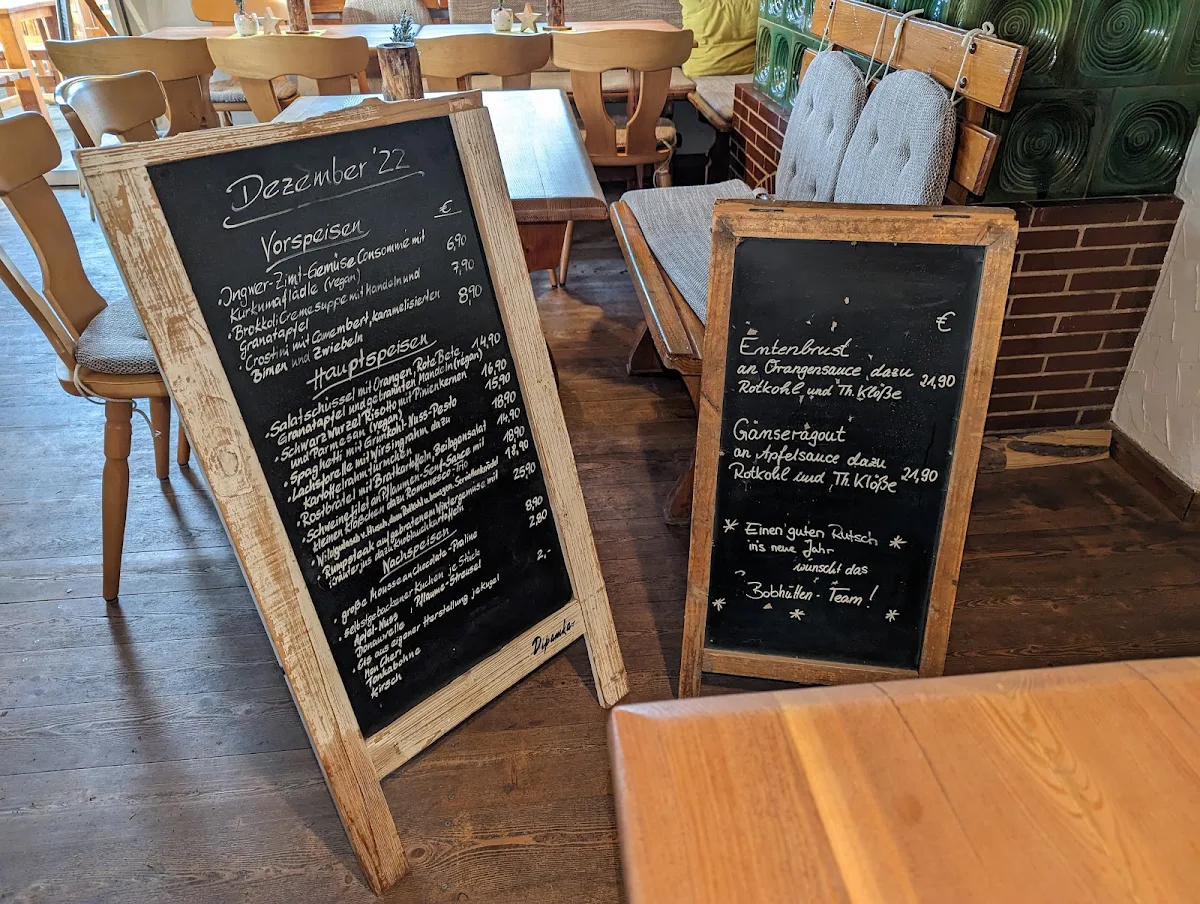 Dezember '22
€
Vorspeisen
• Ingwer-Zimt-Gemüse Consommé mit 6,90
Kurkumaflädle (vegan)
• Brokkoli Cremesuppe mit Mandeln und 7,90
Granatapfel
• Crostini mit Camembert, karamelisierten 8,90
Birnen und Zwiebeln
Hauptspeisen
• Salatschüssel mit Orangen, Rote Bete 14,90
Granatapfel und gebrannten Mandeln (vegan)
• Schwarzwurzel Risotto mit Pinienkernen 16,90
und Parmesan (vegan)
• Spaghetti mit Grünkohl-Nuss-Pesto 15,90
• Lachsforelle mit Wirsingrahm, dazu 18,90
Kartoffelrahmtürmchen
• Rostbrätel mit Bratkartoffeln, Beibgensalat 14,90
• Schweinefilet an Pflaumen-Senf-Sauce mit 18,90
kleinen Klößchen dazu Romanesco-Trio
• Wildgulasch v. Hirsch, dazu 18,90
• Rumpsteak auf gebratenen Wintergemüse mit 25,90
Kräuterjus und Knoblauchkartoffeln
Nachspeisen
• große Mousse au Chocolate-Praline 8,90
• selbstgebackener Kuchen je Stück 2,80
Apfel-Nuss, Pflaume-Streusel
Donauwelle
• Eis aus eigener Herstellung je Kugel 2,-
Mon Cheri
Tonkabohne
Kirsch
€
Entenbrust
an Orangensauce dazu
Rotkohl und Th. Klöße 21,90
Gänseragout
an Apfelsauce dazu
Rotkohl und Th. Klöße 21,90
Einen guten Rutsch
ins neue Jahr
wünscht das
Bobhütten-Team!